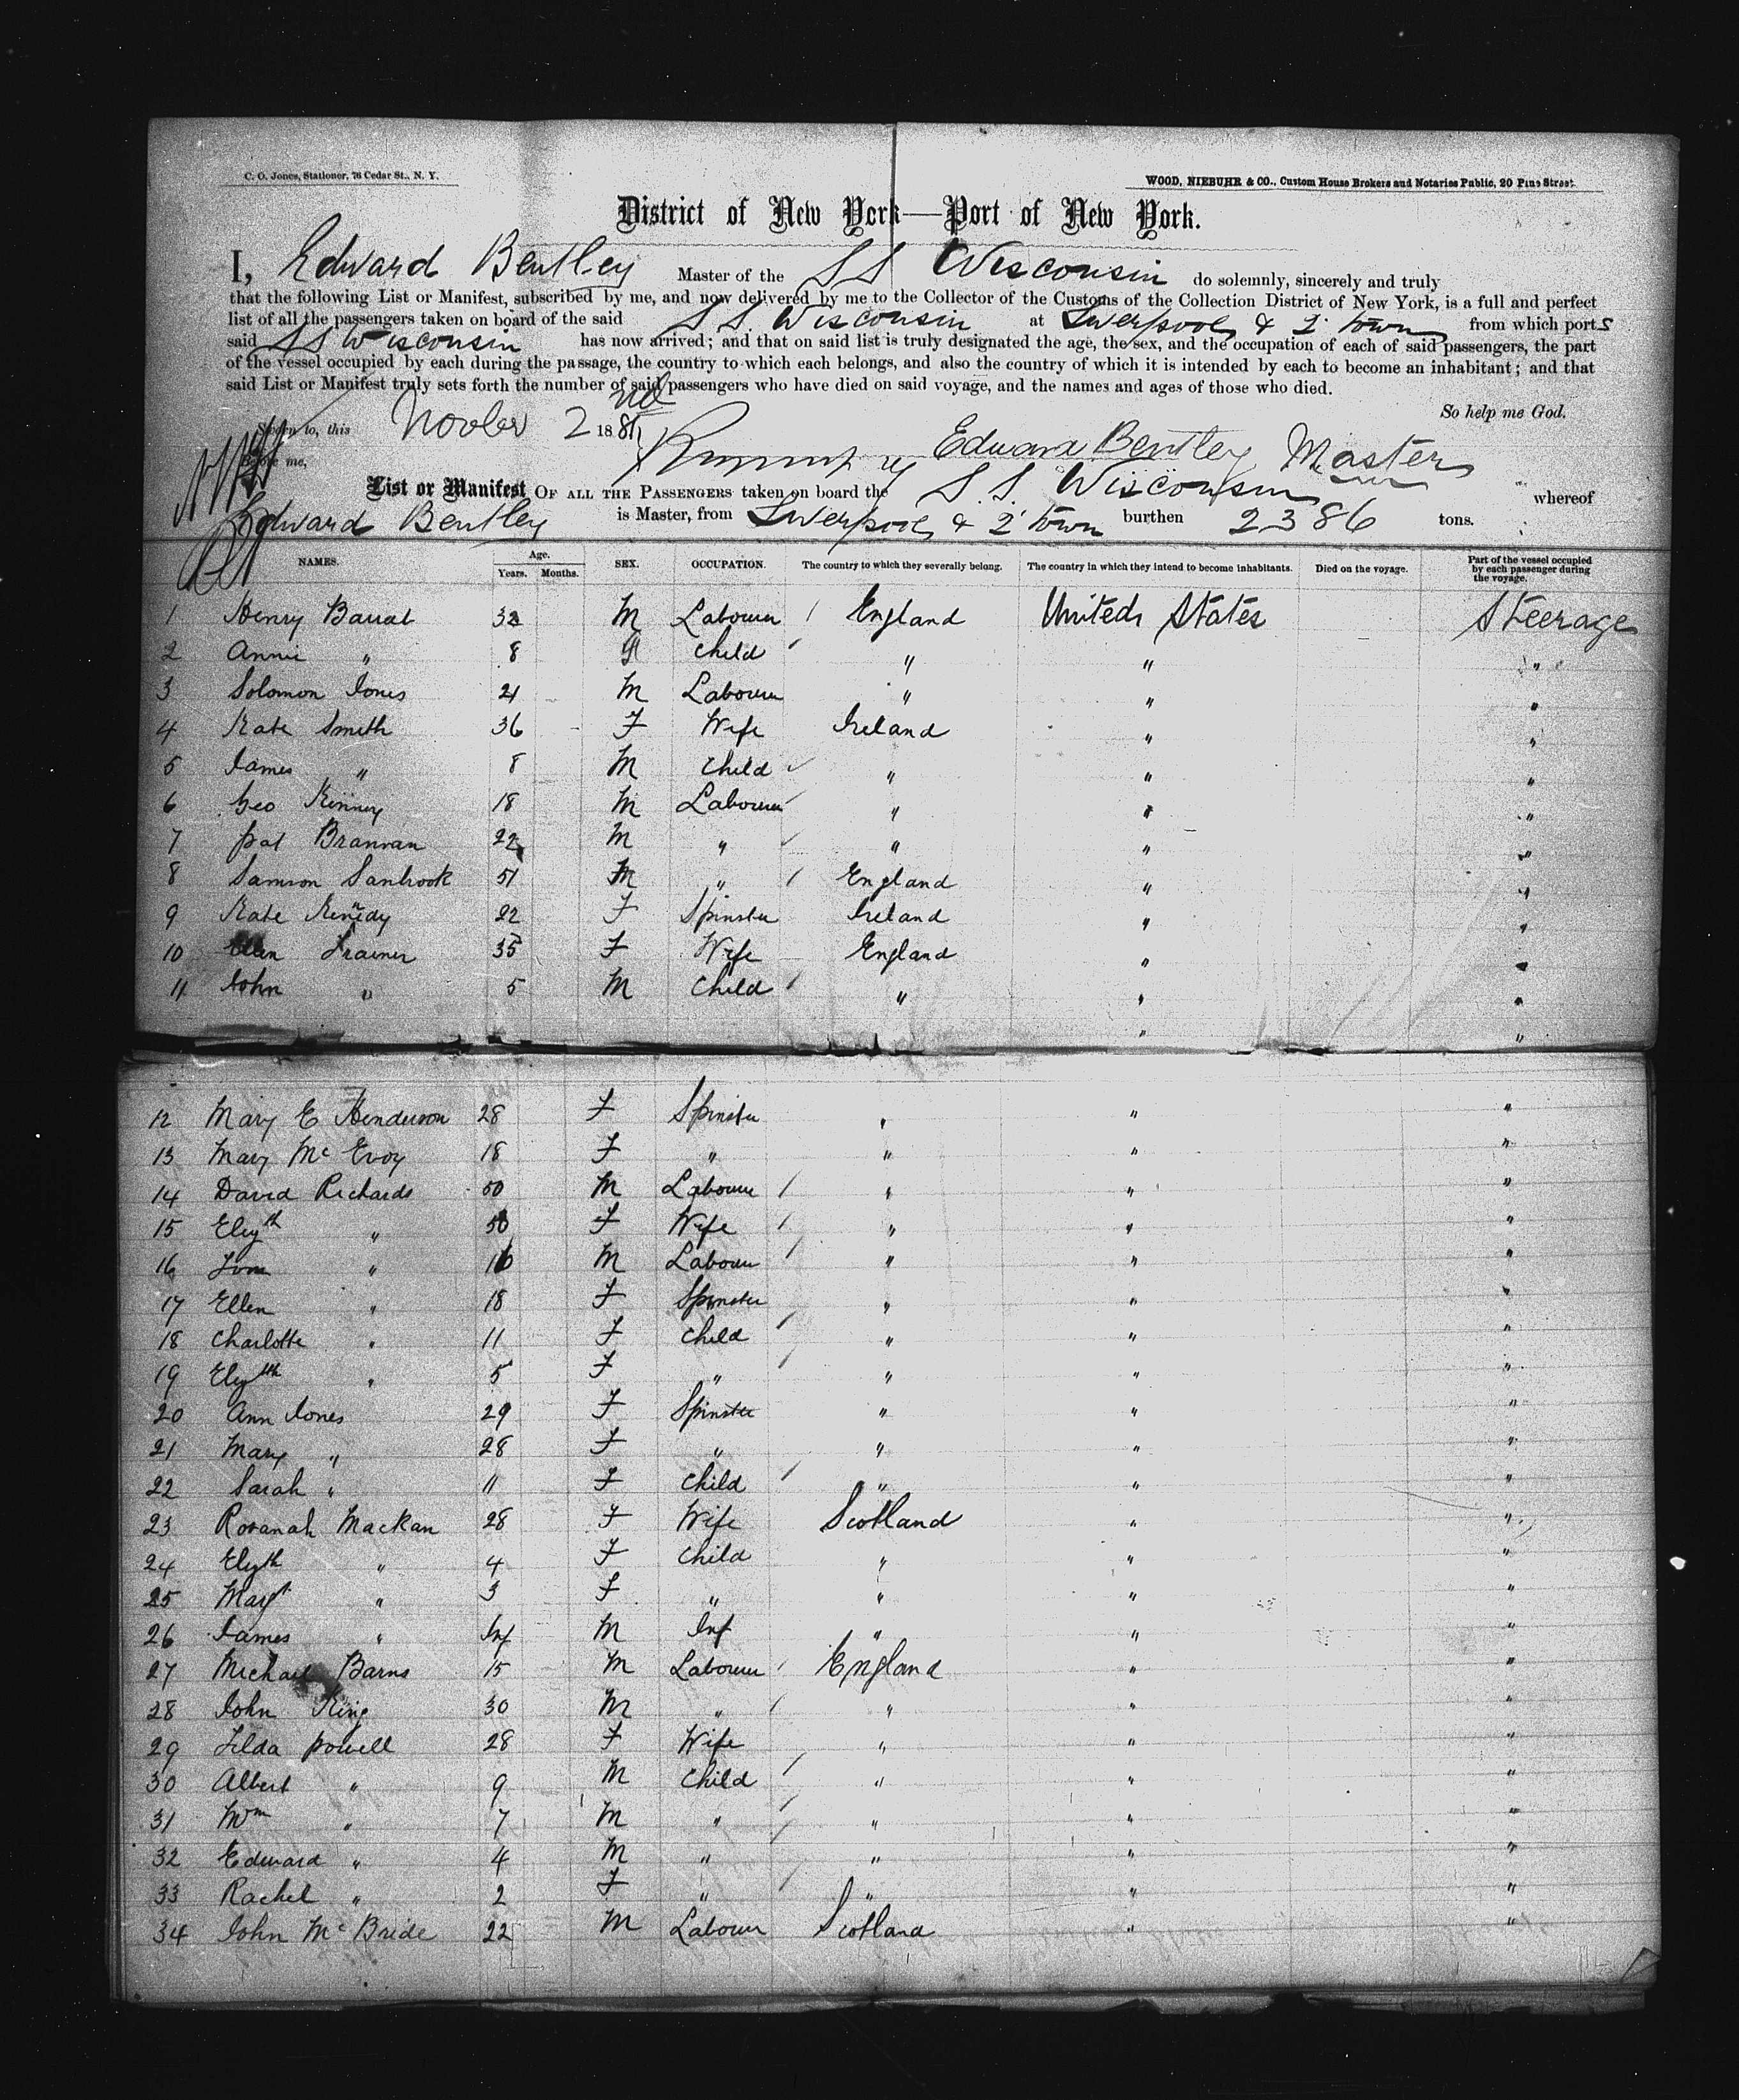 C. O. Jones, Stationer, 76 Cedar St., N. Y.
WOOD, NIEBUHR & CO., Custom House Brokers and Notaries Public, 20 Pine Street
District of New York—Port of New York.
I, Edward Bentley Master of the SS Wisconsin do solemnly, sincerely and truly
that the following List or Manifest, subscribed by me, and now delivered by me to the Collector of the Customs of the Collection District of New York, is a full and perfect
list of all the passengers taken on board of the said SS. Wisconsin at Liverpool & Q' town from which ports
said SS Wisconsin has now arrived; and that on said list is truly designated the age, the sex, and the occupation of each of said passengers, the part
of the vessel occupied by each during the passage, the country to which each belongs, and also the country of which it is intended by each to become an inhabitant; and that
said List or Manifest truly sets forth the number of said passengers who have died on said voyage, and the names and ages of those who died.
So help me God.
Sworn to, this Novber 2nd 1881
Edward Bentley Master
Before me,
List or Manifest OF ALL THE PASSENGERS taken on board the S.S. Wisconsin whereof
Edward Bentley is Master, from Liverpool & Q' town burthen 2386 tons.
NAMES. Age. Years. Months. SEX. OCCUPATION. The country to which they severally belong. The country in which they intend to become inhabitants. Died on the voyage. Part of the vessel occupied by each passenger during the voyage.
1 Henry Barrat 32 M Labourer England United States Steerage
2 Annie " 8 child " " "
3 Solomon Jones 21 M Labourer " " "
4 Kate Smith 36 F Wife Ireland " "
5 James " 8 M child " " "
6 Geo Kinney 18 M Labourer " " "
7 Pat Brannan 22 M " " " "
8 Samson Sanbrook 51 M " England " "
9 Kate Kenedy 22 F Spinster Ireland " "
10 Ellen Trainer 35 F Wife England " "
11 John " 5 M Child " " "
" "
12 Mary E Henderson 28 F Spinster " " "
13 Mary Mc Evoy 18 F " " " "
14 David Richards 50 M Labourer " " "
15 Elizth " 50 F Wife " " "
16 Tom " 16 M Labourer " " "
17 Ellen " 18 F Spinster " " "
18 Charlotte " 11 F Child " " "
19 Elizbth " 5 F " " " "
20 Ann Jones 29 F Spinster " " "
21 Mary " 28 F " " " "
22 Sarah " 11 F child " " "
23 Rosanah Mackan 28 F Wife Scotland " "
24 Elizth " 4 F child " " "
25 Margt " 3 F " " " "
26 James " Inf M Inf " " "
27 Michael Barns 15 M Labourer England " "
28 John King 30 M " " " "
29 Tilda Powell 28 F Wife " " "
30 Albert " 9 M Child " " "
31 Wm " 7 M " " " "
32 Edward " 4 M " " " "
33 Rachel " 2 F " " " "
34 John Mc Bride 22 M Labourer Scotland " "